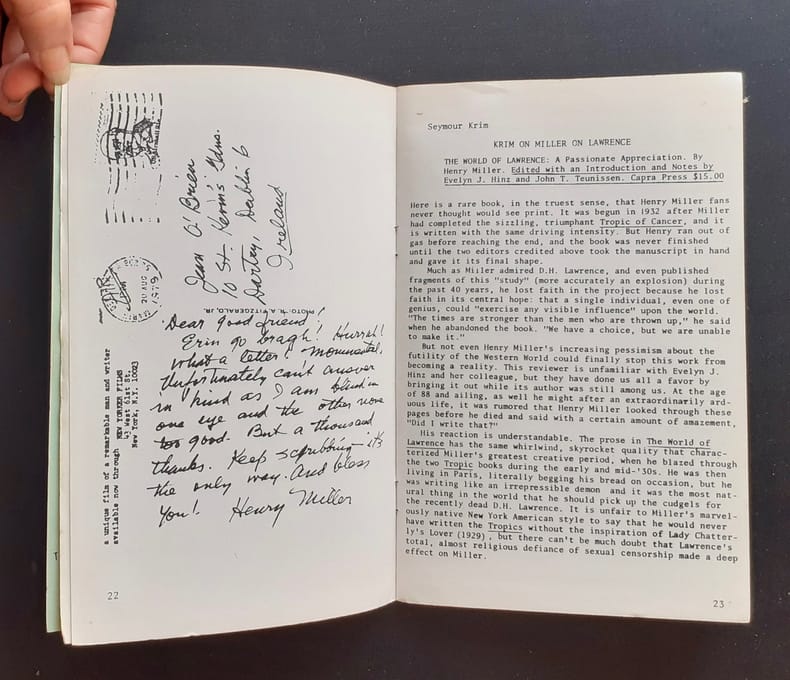 Jean O'Brien
10 St. Kevin's Gdns.
Dartry, Dublin 6
Ireland
PHOTO: R.A. FITZGERALD, JR.
Dear good friend!
Erin go bragh! Hurrah!
what a letter! monumental.
Unfortunately can't answer
in kind as I am blind in
one eye and the other none
too good. But a thousand
thanks. Keep scribbling—it's
the only way. And bless
you! Henry Miller
a unique film of a remarkable man and writer
available now through NEW YORKER FILMS
43 West 61st St.
New York, N.Y. 10023
22
Seymour Krim
KRIM ON MILLER ON LAWRENCE
THE WORLD OF LAWRENCE: A Passionate Appreciation. By
Henry Miller. Edited with an Introduction and Notes by
Evelyn J. Hinz and John T. Teunissen. Capra Press $15.00
Here is a rare book, in the truest sense, that Henry Miller fans
never thought would see print. It was begun in 1932 after Miller
had completed the sizzling, triumphant Tropic of Cancer, and it
is written with the same driving intensity. But Henry ran out of
gas before reaching the end, and the book was never finished
until the two editors credited above took the manuscript in hand
and gave it its final shape.
Much as Miller admired D.H. Lawrence, and even published
fragments of this "study" (more accurately an explosion) during
the past 40 years, he lost faith in the project because he lost
faith in its central hope: that a single individual, even one of
genius, could "exercise any visible influence" upon the world.
"The times are stronger than the men who are thrown up," he said
when he abandoned the book. "We have a choice, but we are unable
to make it."
But not even Henry's increasing pessimism about the
futility of the Western World could finally stop this work from
becoming a reality. This reviewer is unfamiliar with Evelyn J.
Hinz and her colleague, but they have done us all a favor by
bringing it out while its author was still among us. At the age
of 88 and ailing, as well he might after an extraordinarily ard-
uous life, it was rumored that Henry Miller looked through these
pages before he died and said with a certain amount of amazement,
"Did I write that?"
His reaction is understandable. The prose in The World of
Lawrence has the same whirlwind, skyrocket quality that charac-
terized Miller's greatest creative period, when he blazed through
the two Tropic books during the early and mid-'30s. He was then
living in Paris, literally begging his bread on occasion, but he
was writing like an irrepressible demon and it was the most nat-
ural thing in the world that he should pick up the cudgels for
the recently dead D.H. Lawrence. It is unfair to Miller's marvel-
ously native New York American style to say that he would never
have written the Tropics without the inspiration of Lady Chatter-
ly's Lover (1929), but there can't be much doubt that Lawrence's
total, almost religious defiance of sexual censorship made a deep
effect on Miller.
23